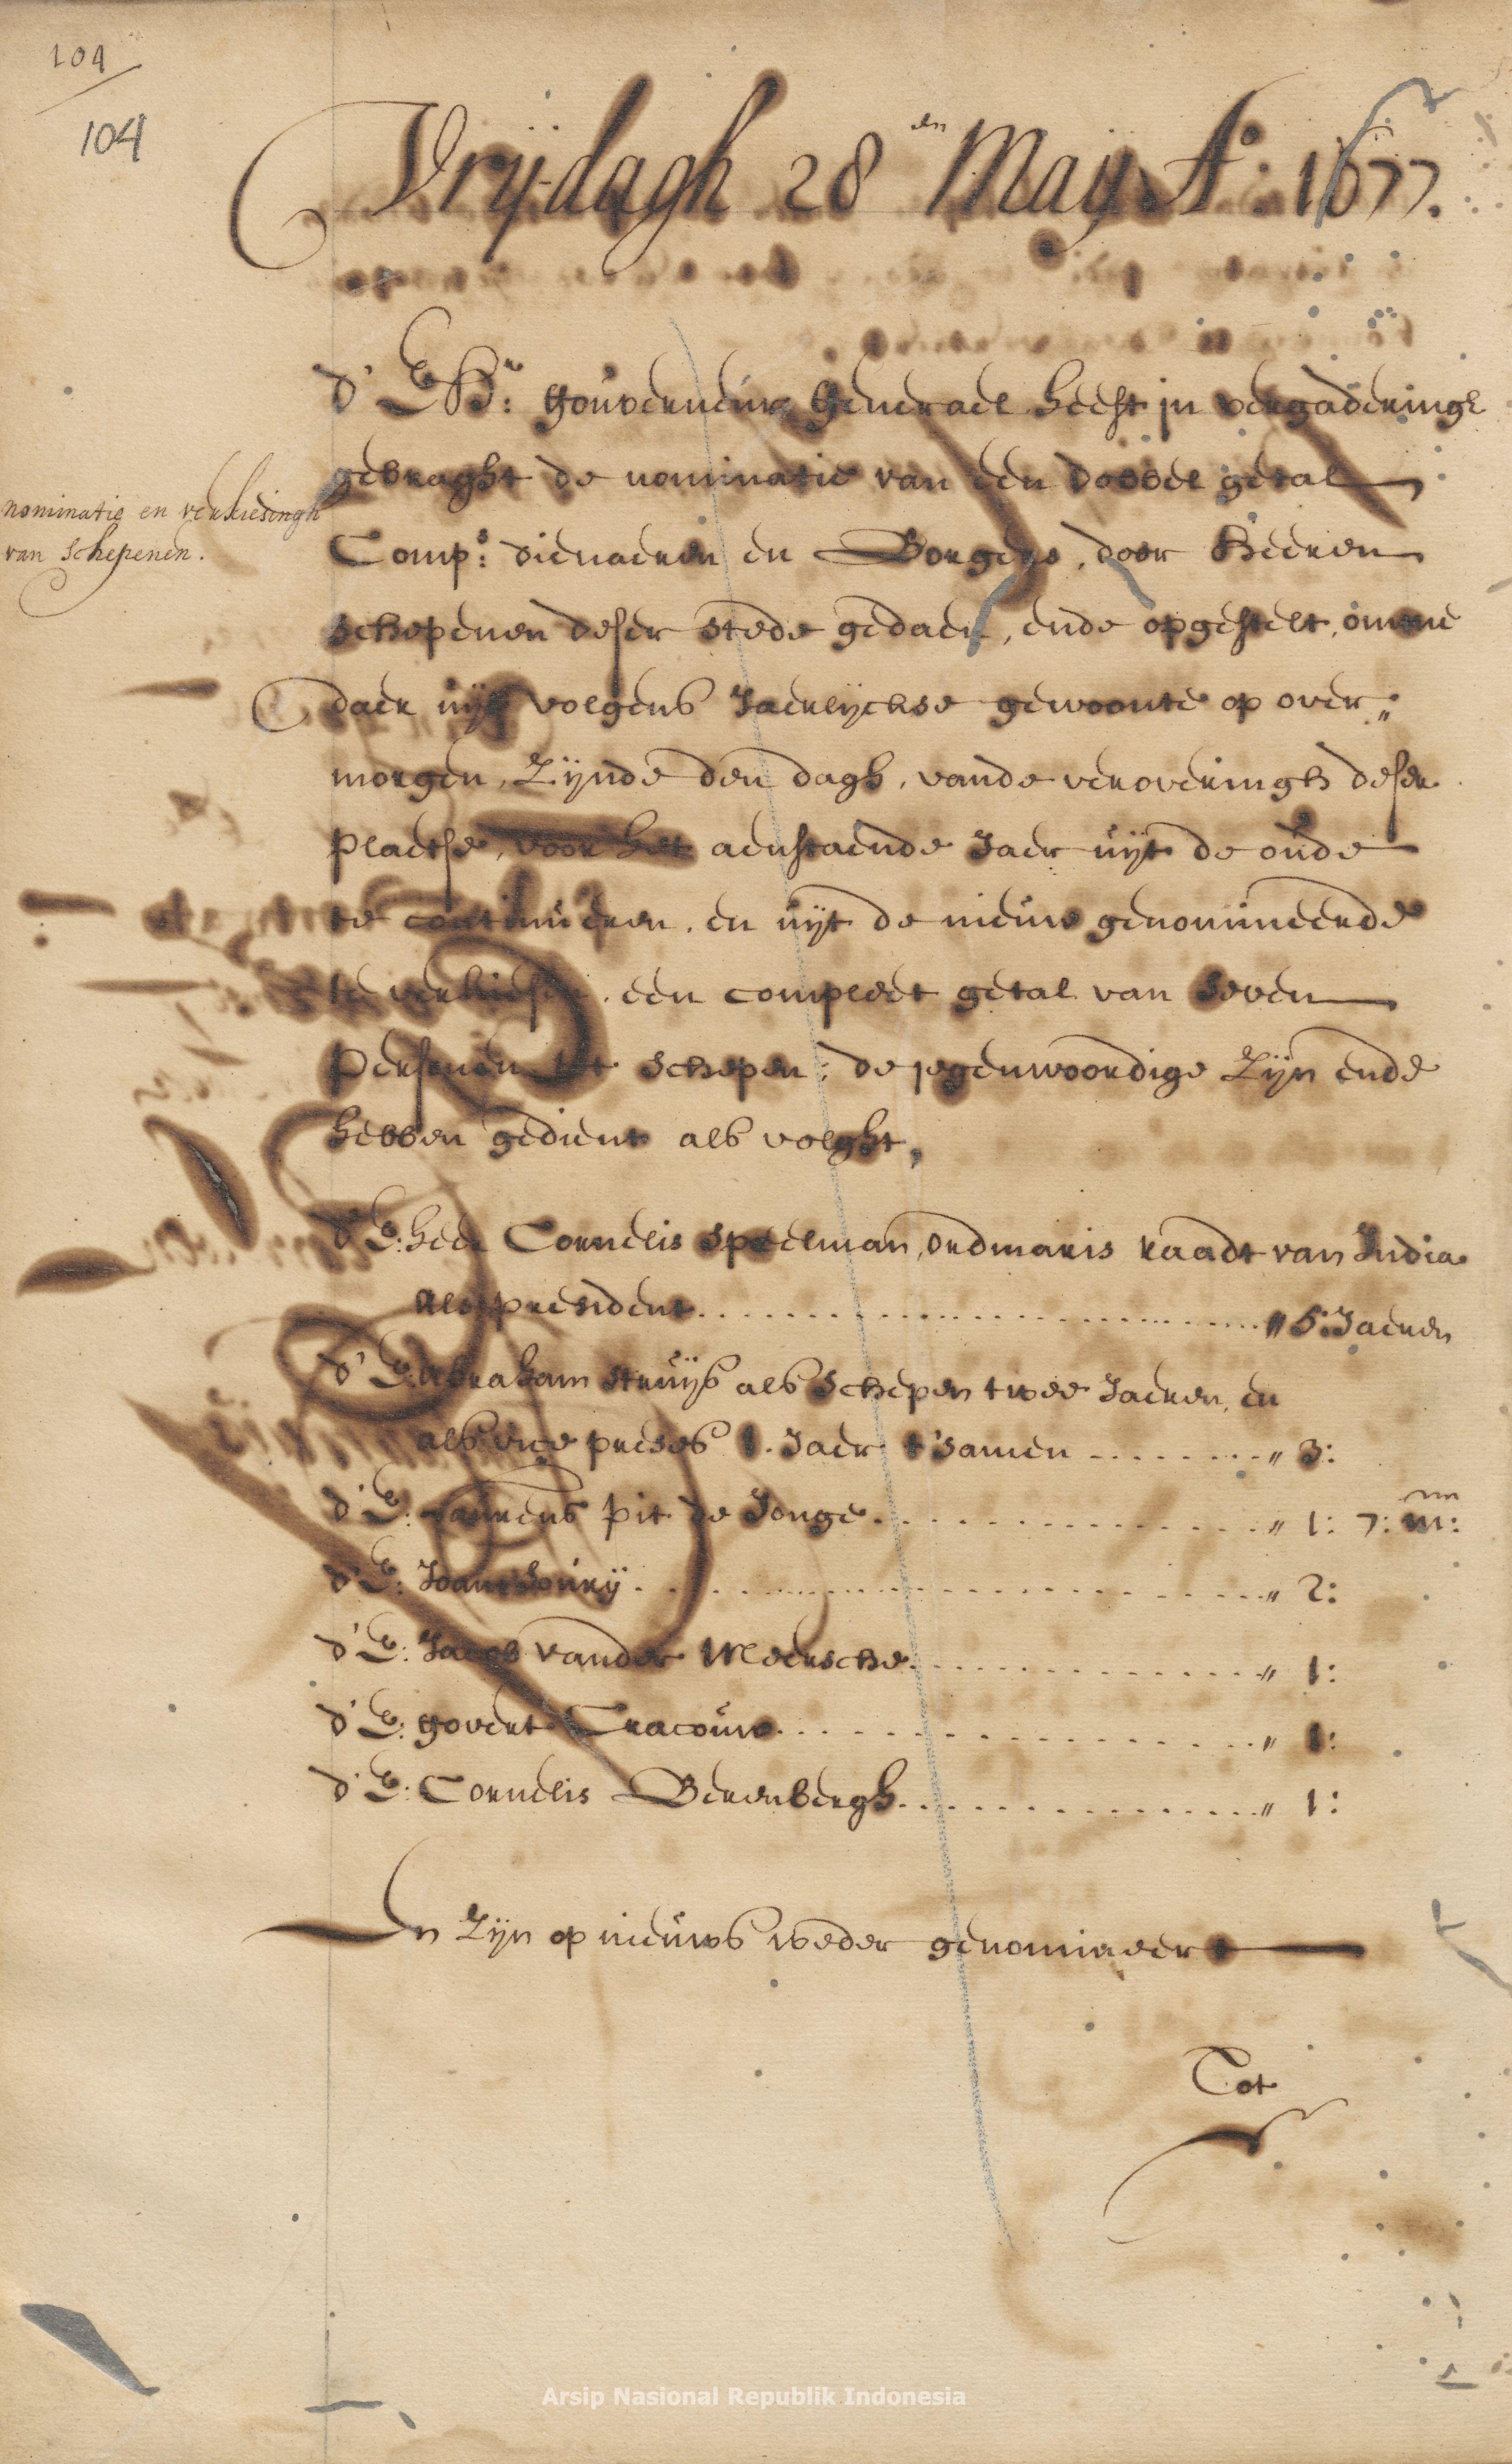 104
104
Vrijdagh 28en May Ao. 1677.
d' E Hr. gouverneur generael heeft in vergaderingh
gebraght de nominatie van een dobbel getal
nominatie en verkiesingh
van schepenen.
Comps. dienaeren en Borgers, door Heeren
schepenen deser stede gedaen, ende opgestelt, omme
daer uijt volgens Jaerlijckse gewoonte op over„
morgen, Zijnde den dagh, vande veroveringh deser
plaetse, voor het aenstaende Jaer uijt de oude
te continueren, en uijt de nieuw genomineerde
te verkiesen, een compleet getal van seven
Persenen tot schepen; de jegenwoordige Zijn ende
hebben gedient als volght,
d' E: heer Cornelis Speelman, ordinaris raadt van India
als president . . . . . . . . . . . . . . . . . . . . „ 5: Jaeren
d' E: Abraham Struijs als schepen twee Jaeren, en
als vice preses 1. Jaer t' samen . . . . . . . . „ 3:
d' E: Laurens Pit de Jonge . . . . . . . . . . . . . . . „ 1: 7: m:
d' E: . . . . . . . . . . . . . . . . . . . . . „ 2:
d' E: Jacob vander Meersche . . . . . . . . . . . . . „ 1:
d' E: govert Cracouw . . . . . . . . . . . . . . . . . „ 1:
d' E: Cornelis Berenbergh . . . . . . . . . . . . . . „ 1:
En Zijn op nieuws weder genomineert
Tot
Arsip Nasional Republik Indonesia